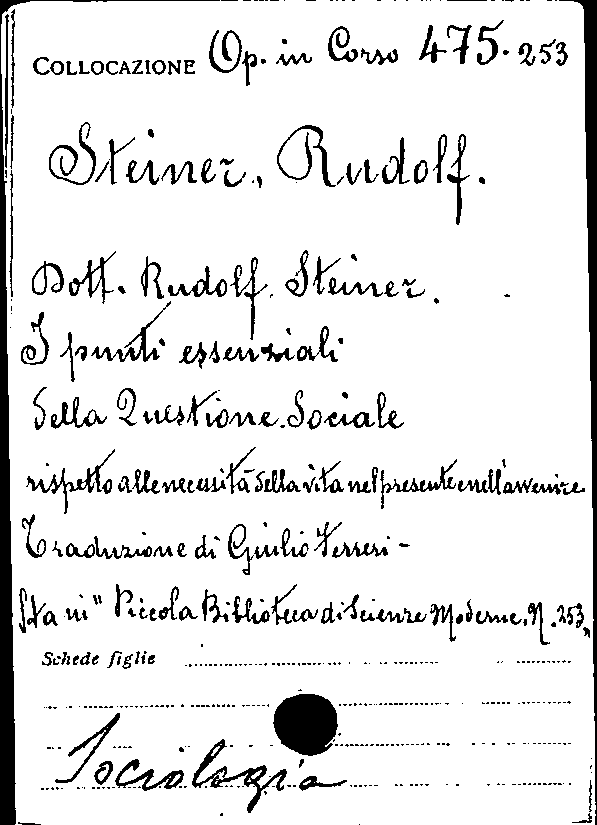 COLLOCAZIONE Op. in Corso 475. 253
Steiner, Rudolf.
Dott. Rudolf Steiner.
I punti essenziali
della Questione Sociale
rispetto alle necessità della vita nel presente e nell'avvenire
Traduzione di Giulio Ferreri -
Sta in "Piccola Biblioteca di Scienze Moderne. N. 253"
Schede figlie
Sociologia